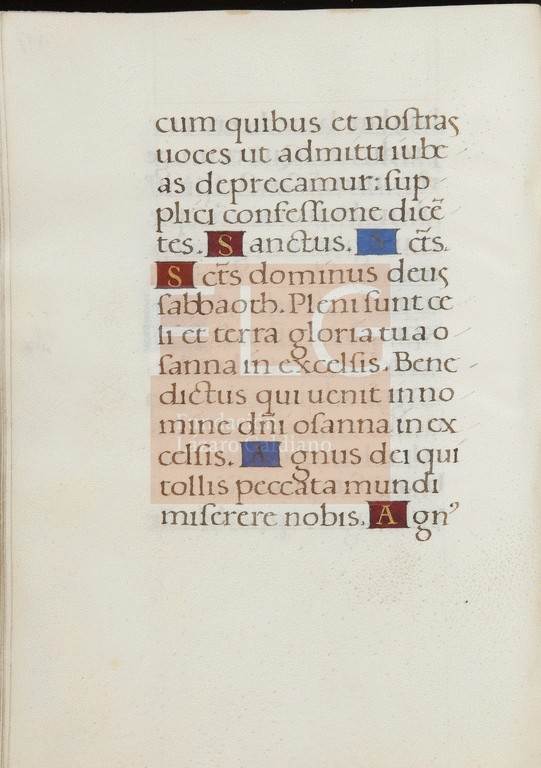 cum quibus et nostras
uoces ut admitti iube
as deprecamur: sup
plici confessione dicē
tes. Sanctus. S ct̄s.
S ct̄s dominus deus
sabbaoth. Pleni sunt ce
li et terra gloria tua o
sanna in excelsis. Bene
dictus qui uenit in no
mine dñi osanna in ex
celsis. Agnus dei qui
tollis peccata mundi
miserere nobis. Agnꝰ
FLG
Fundación
Lázaro Galdiano